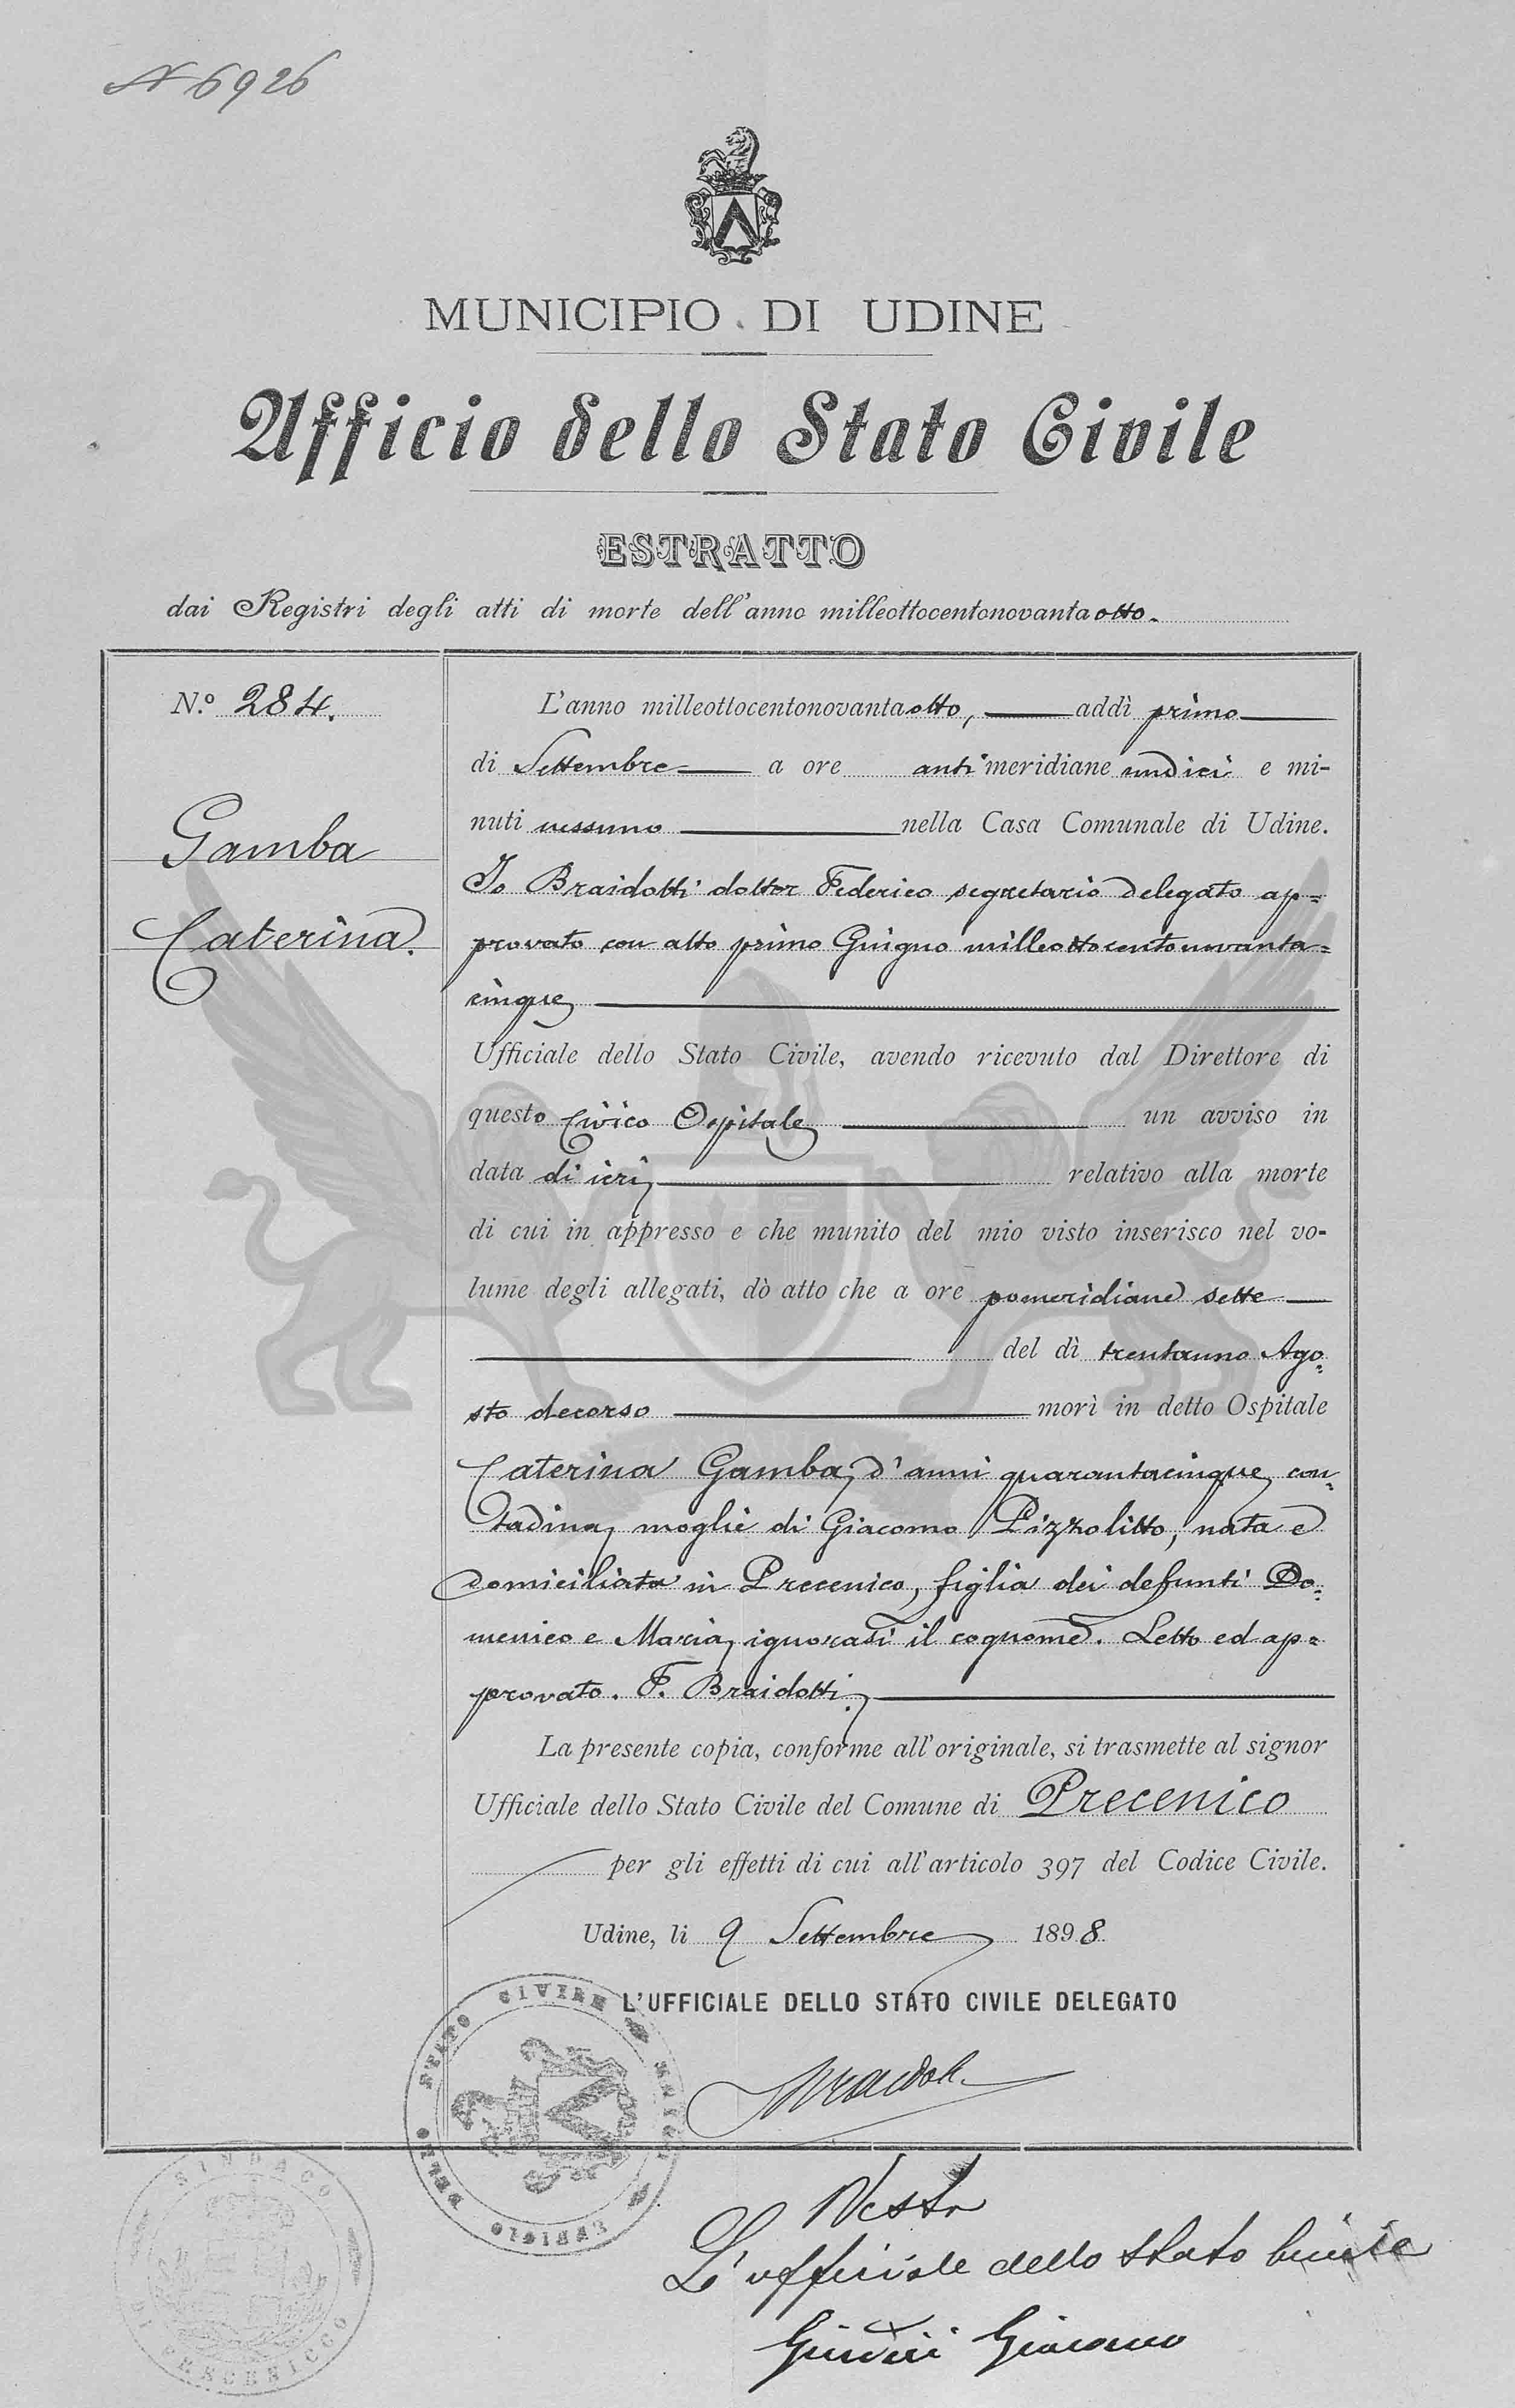 N 6926
MUNICIPIO DI UDINE
Ufficio dello Stato Civile
ESTRATTO
dai Registri degli atti di morte dell'anno milleottocentonovanta otto.
N.º 284.
Gamba
Caterina.
L'anno milleottocentonovanta otto, addì primo
di Settembre a ore anti meridiane undici e mi-
nuti nessuno nella Casa Comunale di Udine.
Io Braidotti dottor Federico segretario delegato ap=
provato con atto primo Giugno milleottocentonovanta=
cinque
Ufficiale dello Stato Civile, avendo ricevuto dal Direttore di
questo Civico Ospitale un avviso in
data di ieri relativo alla morte
di cui in appresso e che munito del mio visto inserisco nel vo-
lume degli allegati, dò atto che a ore pomeridiane sette
del dì trentauno Ago=
sto decorso morì in detto Ospitale
Caterina Gamba, d'anni quarantacinque, con=
tadina, moglie di Giacomo Pizzolitto, nata e
domiciliata in Precenico, figlia dei defunti Do=
menico e Maria, ignorasi il cognome. Letto ed ap=
provato. F. Braidotti.
La presente copia, conforme all'originale, si trasmette al signor
Ufficiale dello Stato Civile del Comune di Precenico
per gli effetti di cui all'articolo 397 del Codice Civile.
Udine, li 9 Settembre 1898.
L'UFFICIALE DELLO STATO CIVILE DELEGATO
UFFICIO DELLO STATO CIVILE
SINDACO DI PRECENICCO
L'ufficiale dello Stato Civile
Giacomo